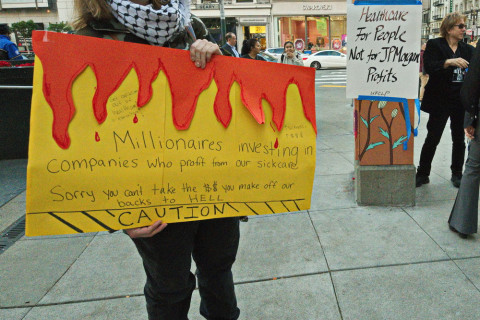 Healthcare
For People
Not for JPMorgan
Profits
Millionaires investing in
companies who profit from our sickcare.
Sorry you can't take the $$ you make off our
backs to HELL
CAUTION